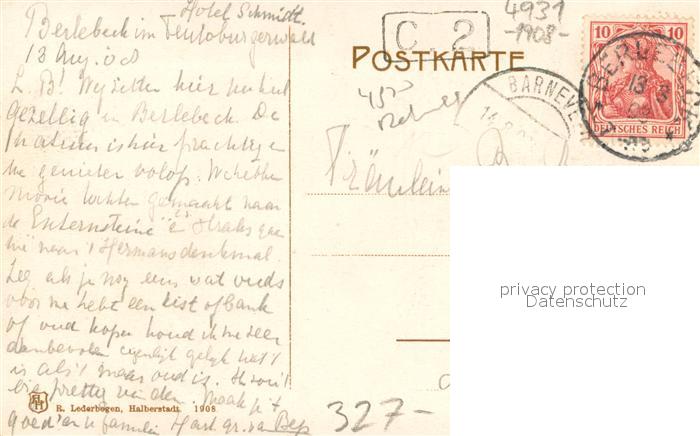 Hotel Schmidt.
Berlebeck im Teutoburgerwald
13 Aug. 08
L. B! Wij zitten hier
gezellig in Berlebeck. De
natuur is hier prachtig en
we genieten volop. We hebben
mooie tochten gemaakt naar
de Externsteine en straks gaan
we naar 't Hermansdenkmal
Zeg als je nog eens wat ouds
voor me hebt een kist of bank
of oud koper houd ik me zeer
aanbevolen eigenlijk gelijk wat 't
is als 't maar oud is.
prettig vinden. Maak je 't
goed en je familie Hart. gr. van Bep
R. Lederbogen, Halberstadt. 1908
C. 2
4931
-1908-
POSTKARTE
BARNEVE
14.8.
Fräulein
10 10
DEUTSCHES REICH
BERLEBE
13 8
privacy protection
Datenschutz
327-